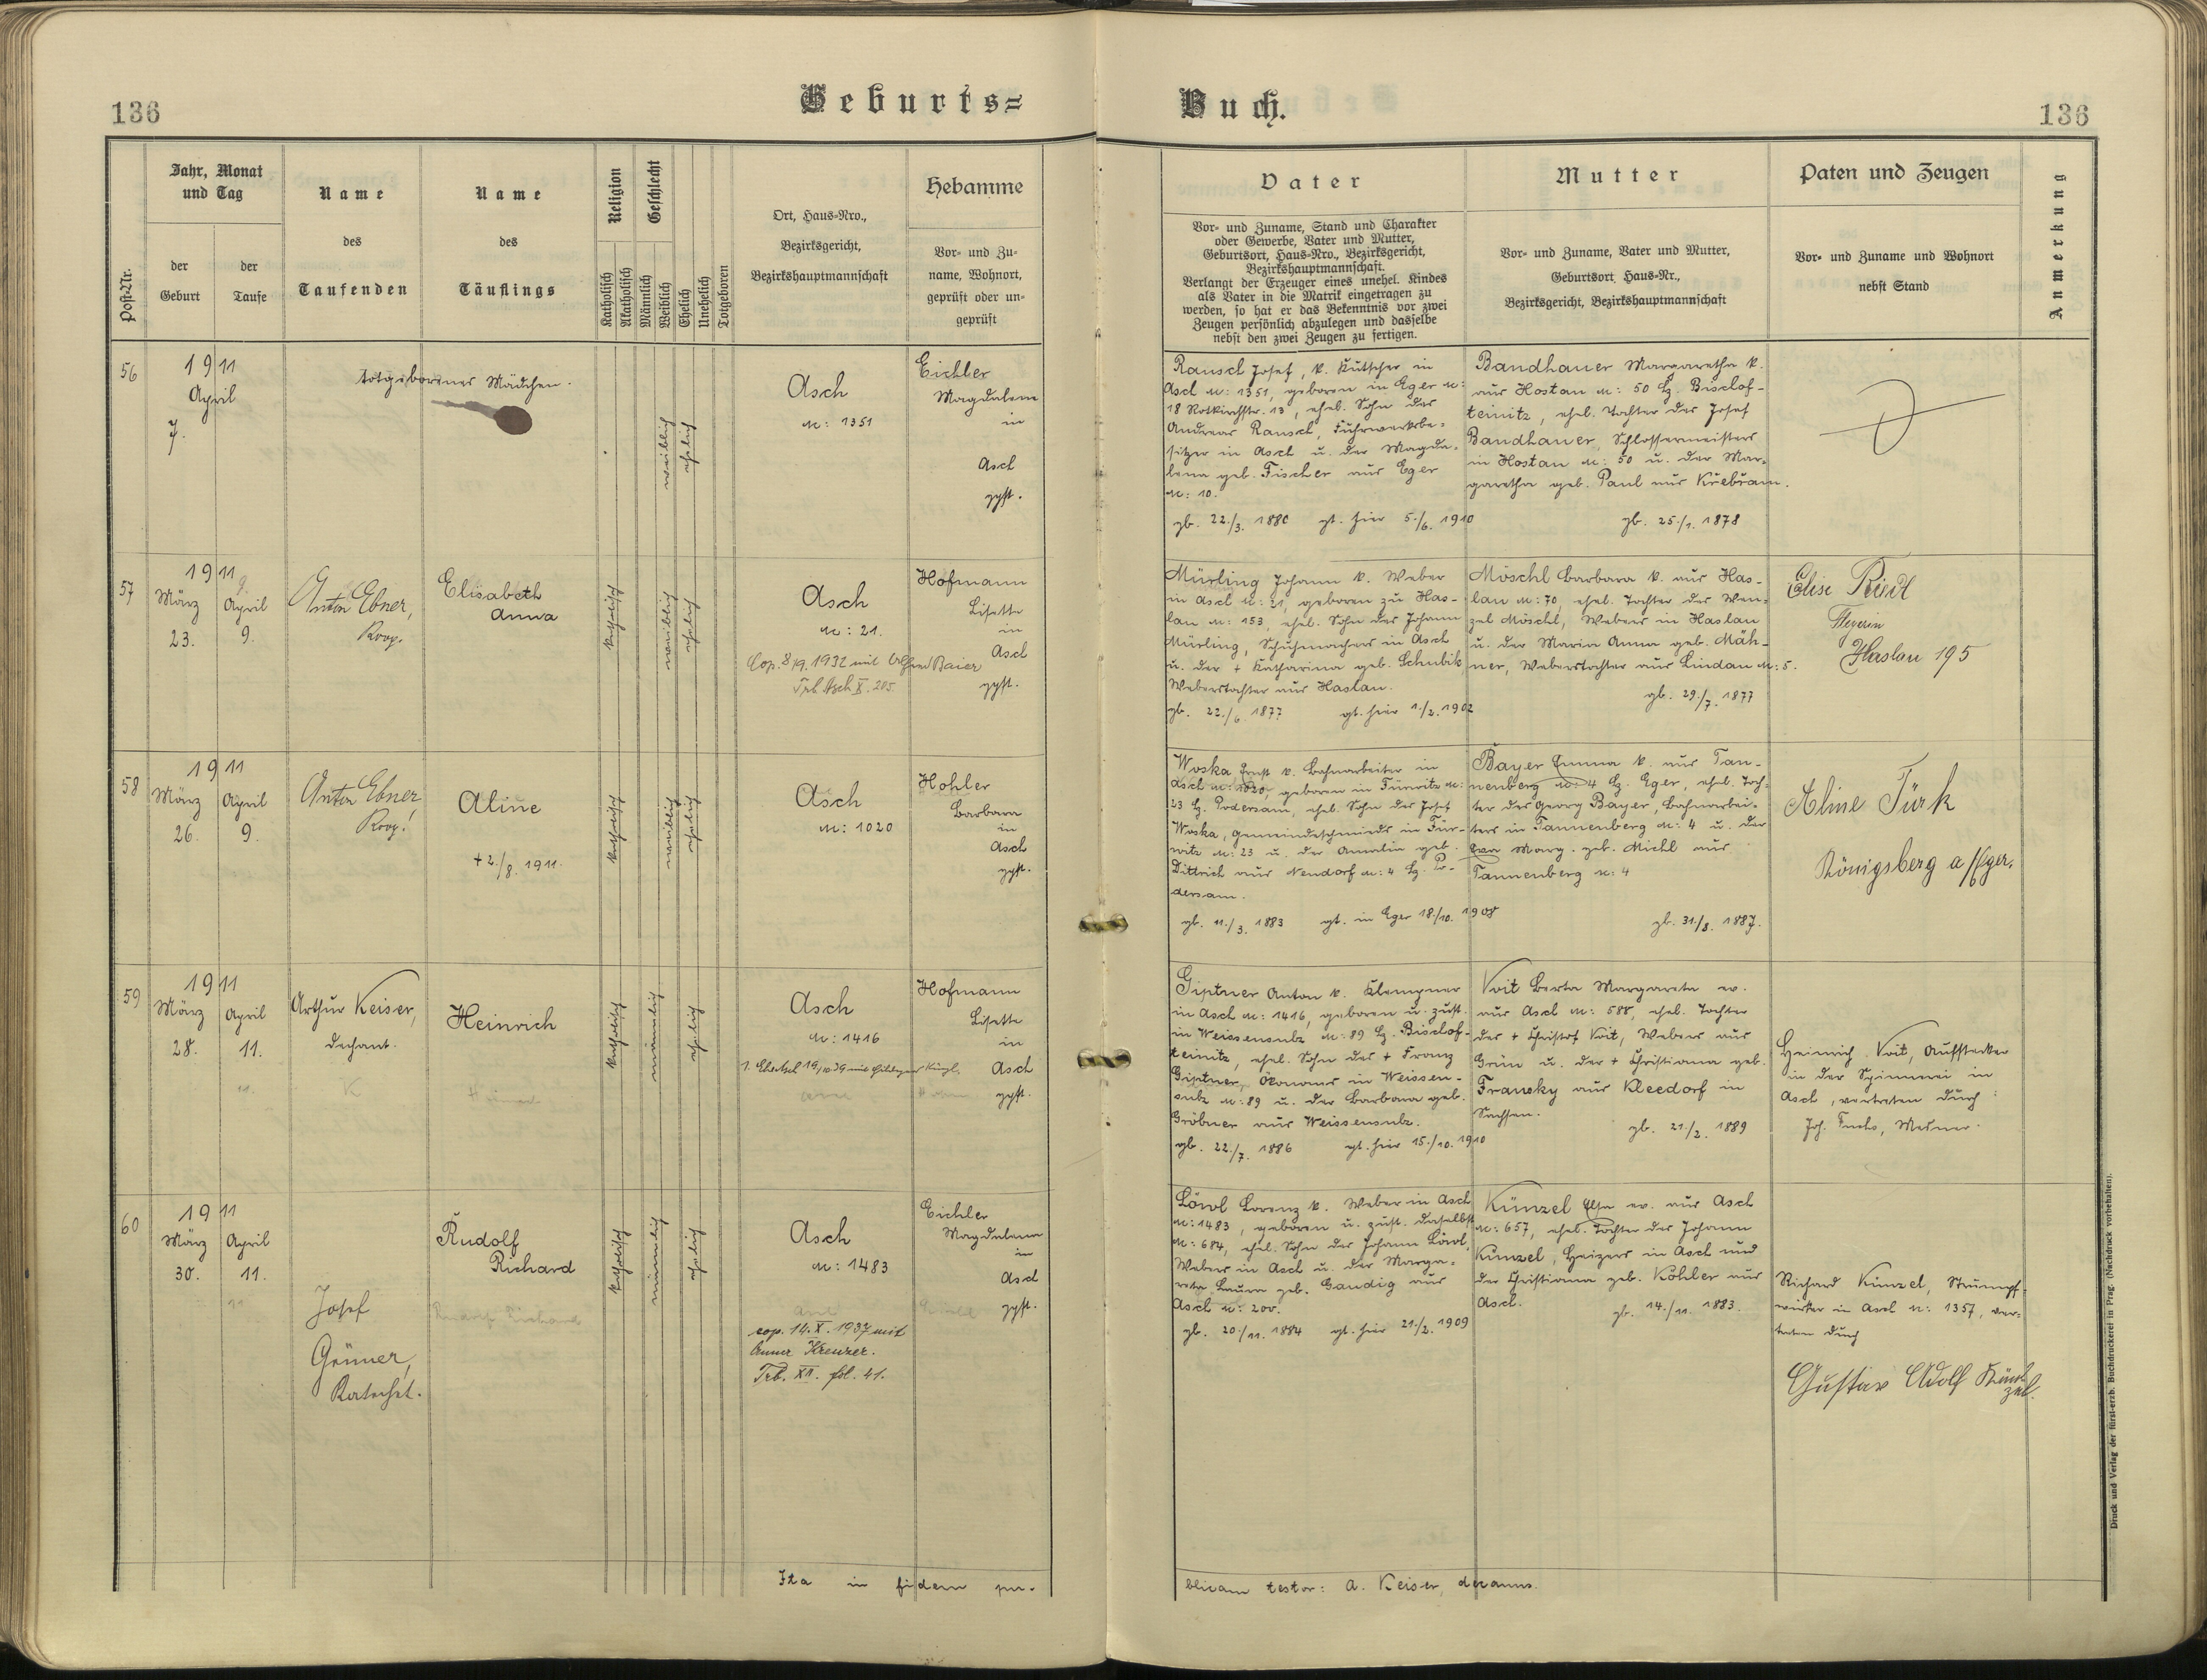 136
Geburts=
Buch.
136
Post-Nr.
Jahr, Monat
und Tag
der
Geburt
der
Taufe
Name
des
Taufenden
Name
des
Täuflings
Religion
Katholisch
Akatholisch
Geschlecht
Männlich
Weiblich
Ehelich
Unehelich
Totgeboren
Ort, Haus-Nro.,
Bezirksgericht,
Bezirkshauptmannschaft
Hebamme
Vor- und Zu-
name, Wohnort,
geprüft oder un-
geprüft
Vater
Vor- und Zuname, Stand und Charakter
oder Gewerbe, Vater und Mutter,
Geburtsort, Haus-Nro., Bezirksgericht,
Bezirkshauptmannschaft.
Verlangt der Erzeuger eines unehel. Kindes
als Vater in die Matrik eingetragen zu
werden, so hat er das Bekenntnis vor zwei
Zeugen persönlich abzulegen und dasselbe
nebst den zwei Zeugen zu fertigen.
Mutter
Vor- und Zuname, Vater und Mutter,
Geburtsort, Haus-Nr.,
Bezirksgericht, Bezirkshauptmannschaft
Paten und Zeugen
Vor- und Zuname und Wohnort
nebst Stand
Anmerkung
56
1911
April
7.
totgeborenes Mädchen.
weiblich
ehelich
Asch
N: 1351
Eichler
Magdalena
in
Asch
gpft.
Rausch Josef, k. Kutscher in
Asch N: 1351, geboren in Eger N:
18 Rotkirchstr. 13, ehel. Sohn des
Andreas Rausch, Fuhrwerksbe-
sitzer in Asch u. der Magda-
lena geb. Fischer aus Eger
N: 10.
gb. 22./3. 1880 gt. hier 5./6. 1910
Bandhauer Margaretha k.
aus Hostau N: 50 Bz. Bischof-
teinitz, ehel. Tochter des Josef
Bandhauer, Schlossermeisters
in Hostau N: 50 u. der Mar-
garetha geb. Paul aus Křebřam.
gb. 25./1. 1878
57
1911
März
23.
April
9.
Anton Ebner,
Koop.
Elisabeth
Anna
katholisch
weiblich
ehelich
Asch
N: 21.
Cop. 8/9. 1932 mit Alfred Baier
Trb. Asch X. 205.
Hofmann
Lisette
in
Asch
gpft.
Mürling Johann k. Weber
in Asch N: 21, geboren zu Has-
lau N: 153, ehel. Sohn des Johann
Mürling, Schuhmachers in Asch
u. der + Katharina geb. Schubik,
Weberstochter aus Haslau.
gb. 22./6. 1877 gt. hier 1./2. 1902
Möschl Barbara k. aus Has-
lau N: 70, ehel. Tochter des Wen-
zel Möschl, Webers in Haslau
u. der Maria Anna geb. Mäh-
ner, Weberstochter aus Lindau N: 5.
gb. 29./7. 1877
Elise Riedl
Haslau 195
58
1911
März
26.
April
9.
Anton Ebner
Koop.
Aline
+ 2./8. 1911.
katholisch
weiblich
ehelich
Asch
N: 1020
Hohler
Barbara
in
Asch
gpft.
Woska Ernst k. Bahnarbeiter in
Asch N: 1020, geboren in Fürwitz N:
23 Bz. Podersam, ehel. Sohn des Josef
Woska, Gemeindeschmieds in Für-
witz N: 23 u. der Amalia geb.
Dittrich aus Neudorf N: 4 Bz. Po-
dersam.
gb. 11./3. 1883 gt. in Eger 18./10. 1908
Bayer Emma k. aus Tan-
nenberg N: 4 Bz. Eger, ehel. Toch-
ter des Georg Bayer, Bahnarbei-
ters in Tannenberg N: 4 u. der
Eva Marg. geb. Michl aus
Tannenberg N: 4
gb. 31./8. 1887.
Aline Türk
Königsberg a/Eger.
59
1911
März
28.
April
11.
Arthur Keiser,
Dechant.
Heinrich
katholisch
männlich
ehelich
Asch
N: 1416
Hofmann
Lisette
in
Asch
gpft.
Giptner Anton k. Klempner
in Asch N: 1416, geboren u. zust.
in Weissensulz N: 89 Bz. Bischof-
teinitz, ehel. Sohn des + Franz
Giptner, Ökonoms in Weissen-
sulz N: 89 u. der Barbara geb.
Gröbner aus Weissensulz.
gb. 22./7. 1886 gt. hier 15./10. 1910
Voit Berta Margareta ev.
aus Asch N: 588, ehel. Tochter
des + Christof Voit, Webers aus
Grün u. der + Christiana geb.
Fransky aus Kleedorf in
Sachsen.
gb. 21./2. 1889
Heinrich Voit, Aufstecker
in der Spinnerei in
Asch, vertreten durch
Joh. Fuchs, Mesner.
60
1911
März
30.
April
11.
Josef
Grüner,
Katechet.
Rudolf
Richard
katholisch
männlich
ehelich
Asch
N: 1483
cop. 14. X. 1937 mit
Anna Kreuzer.
Trb. XII. fol. 41.
Eichler
Magdalena
in
Asch
gpft.
Löwl Lorenz k. Weber in Asch
N: 1483, geboren u. zust. daselbst
N: 684, ehel. Sohn des Johann Löwl,
Webers in Asch u. der Marga-
reta Laura geb. Gandig aus
Asch N: 200.
gb. 20./11. 1884 gt. hier 21./2. 1909
Künzel Elsa ev. aus Asch
N: 657, ehel. Tochter des Johann
Künzel, Heizers in Asch und
der Christiana geb. Köhler aus
Asch.
gb. 14./11. 1883.
Richard Künzel, Strumpf-
wirker in Asch N: 1357, ver-
treten durch
Gustav Adolf Kün-
zel.
Ita in fidem pu-
blicam testor: A. Keiser, decanus.
Druck und Verlag der fürst-erzb. Buchdruckerei in Prag. (Nachdruck vorbehalten).